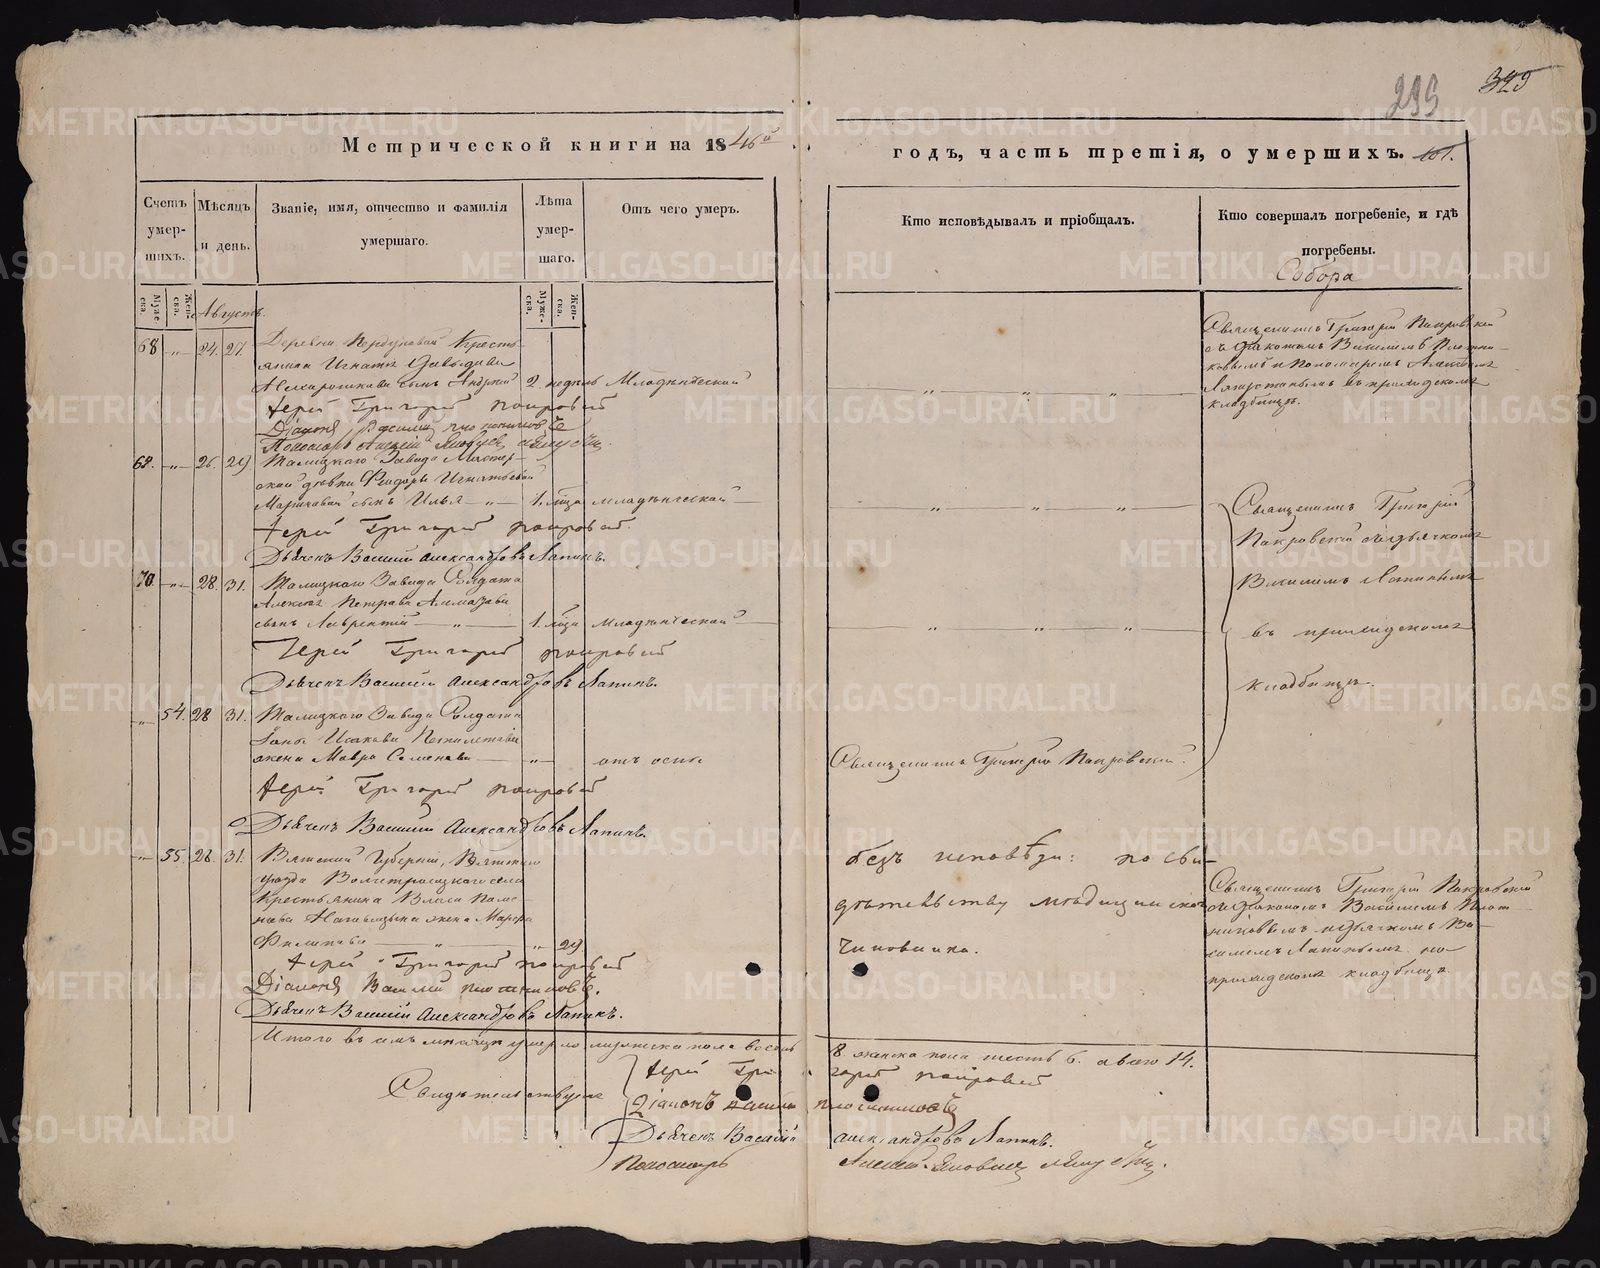 299
329
Метрической книги на 1846й
годъ, часть третія, о умершихъ.
101.
Счетъ умер- шихъ.
Мѣсяцъ и день.
Званіе, имя, отчество и фамилія умершаго.
Лѣта умер- шаго.
Отъ чего умеръ.
Кто исповѣдывалъ и пріобщалъ.
Кто совершалъ погребеніе, и гдѣ погребены.
Собора
Муже- ска.
Жен- ска.
Августъ.
Муже- ска.
Жен- ска.
68 „ 24. 27.
Деревни Кресть-
янина Игнатія Давыдова
сынъ Андрей 2 недѣль Младенческой
Іерей Григорій Покровскій
Діаконъ Василій Плотниковъ
Пономарь Алексій
Священникъ Григорій Покровской
съ діакономъ Василіемъ Плотни-
ковымъ и Пономаремъ
въ приходскомъ
кладбищѣ.
69. „ 26. 29.
Талицкаго Завода Мастер-
ской дѣвки Игнатьевой
сынъ Илья „ 1. года младенческой
Іерей Григорій Покровскій.
Дьячекъ Василій Александровъ Лапинъ.
Священникъ Григорій
Покровской съ дьячкомъ
Василіемъ Лапинымъ
въ приходскомъ
кладбищѣ.
70. „ 28. 31.
Талицкаго Завода Солдата
Алексія Петрова Алмазова
сынъ Лаврентій „ 1. года младенческой
Іерей Григорій Покровскій
Дьячекъ Василій Александровъ Лапинъ.
„ 54. 28 31.
Талицкаго Завода Солдата
Исакова
жена Мавра Семенова „ отъ оспы
Священникъ Григорій Покровской.
Іерей Григорій Покровскій
Дьячекъ Василій Александровъ Лапинъ.
„ 55. 28. 31.
Вятской Губерніи, Вятскаго
уѣзда села
Крестьянина Власа
жена Марфа
Филипова „ „ 29
безъ исповѣди: по сви-
дѣтельству медицинскаго
чиновника.
Священникъ Григорій Покровской
съ діакономъ Василіемъ Плот-
никовымъ и дьячкомъ Ва-
силіемъ Лапинымъ на
приходскомъ кладбищѣ
Іерей Григорій Покровскій
Діаконъ Василій Плотниковъ.
Дьячекъ Василій Александровъ Лапинъ.
Итого въ семъ мѣсяцѣ умерло мужеска пола восемь 8. женска пола шесть 6. а всего 14.
Свидѣтельствуютъ
Іерей Григорій Покровскій
Діаконъ Василій Плотниковъ
Дьячекъ Василій Александровъ Лапинъ.
Пономарь Алексій
METRIKI.GASO-URAL.RU